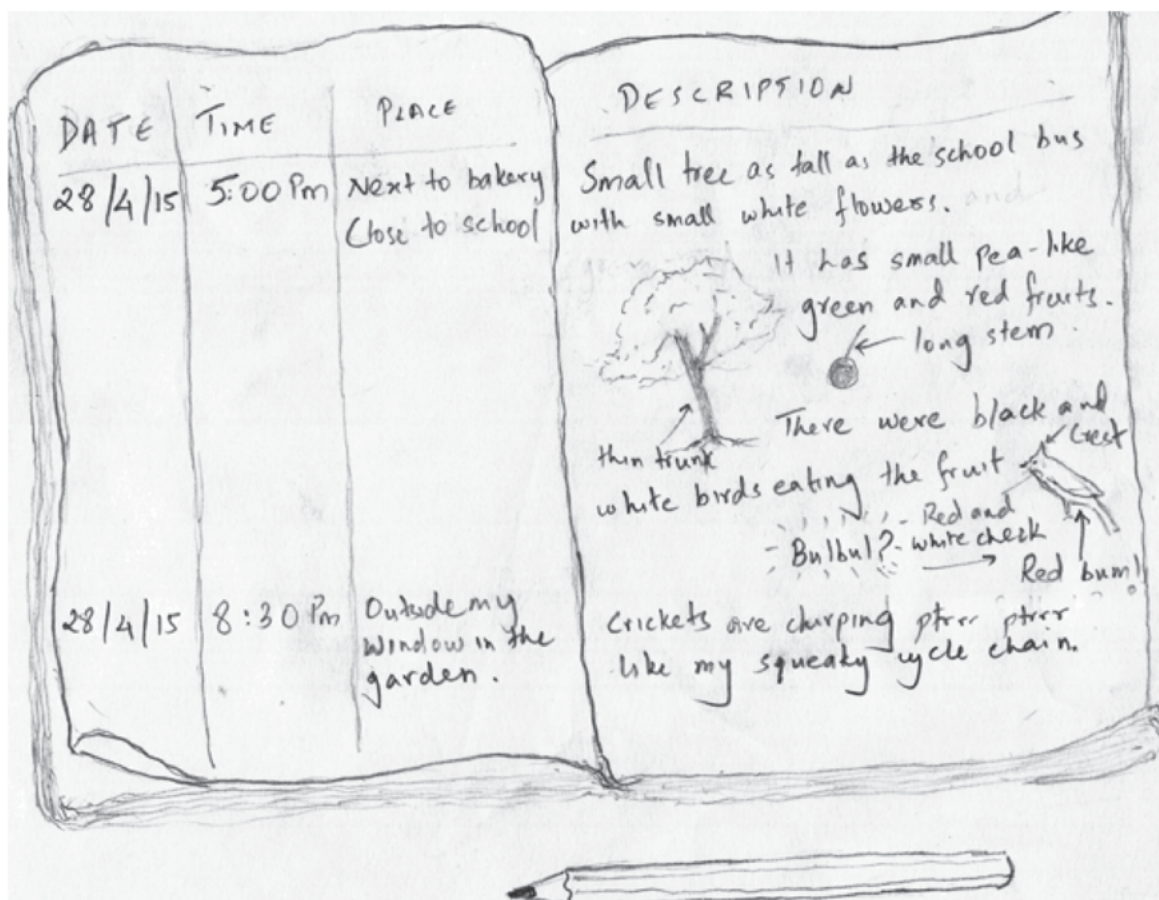 DATE TIME PLACE DESCRIPTION
28/4/15 5:00 Pm Next to bakery
Close to school
Small tree as tall as the school bus
with small white flowers.
It has small pea-like
green and red fruits.
long stem
thin trunk
There were black and
white birds eating the fruit
Crest
Bulbul?
Red and
white cheek
Red bum!
28/4/15 8:30 Pm Outside my
window in the
garden.
Crickets are chirping ptrrr ptrrr
like my squeaky cycle chain.